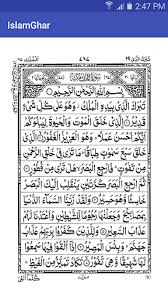 2:47 PM
IslamGhar
بِسْمِ اللهِ الرَّحْمٰنِ الرَّحِيْمِ
تَبٰرَكَ الَّذِيْ بِيَدِهِ الْمُلْكُ وَهُوَ عَلٰى كُلِّ شَيْءٍ
قَدِيْرُ الَّذِيْ خَلَقَ الْمَوْتَ وَالْحَيٰوةَ لِيَبْلُوَكُمْ
اَيُّكُمْ اَحْسَنُ عَمَلًا وَهُوَ الْعَزِيْزُ الْغَفُوْرُ الَّذِيْ
خَلَقَ سَبْعَ سَمٰوٰتٍ طِبَاقًا مَا تَرٰى فِيْ خَلْقِ الرَّحْمٰنِ
مِنْ تَفٰوُتٍ فَارْجِعِ الْبَصَرَ هَلْ تَرٰى مِنْ فُطُوْرٍ ثُمَّ
ارْجِعِ الْبَصَرَ كَرَّتَيْنِ يَنْقَلِبْ اِلَيْكَ الْبَصَرُ خَاسِئًا
وَّهُوَ حَسِيْرٌ وَلَقَدْ زَيَّنَّا السَّمَاءَ الدُّنْيَا بِمَصَابِيْحَ
وَجَعَلْنٰهَا رُجُوْمًا لِّلشَّيٰطِيْنِ وَاَعْتَدْنَا لَهُمْ
عَذَابَ السَّعِيْرِ وَلِلَّذِيْنَ كَفَرُوْا بِرَبِّهِمْ
عَذَابُ جَهَنَّمَ وَبِئْسَ الْمَصِيْرُ اِذَا اُلْقُوْا فِيْهَا سَمِعُوْا
لَهَا شَهِيْقًا وَّهِيَ تَفُوْرُ تَكَادُ تَمَيَّزُ مِنَ الْغَيْظِ